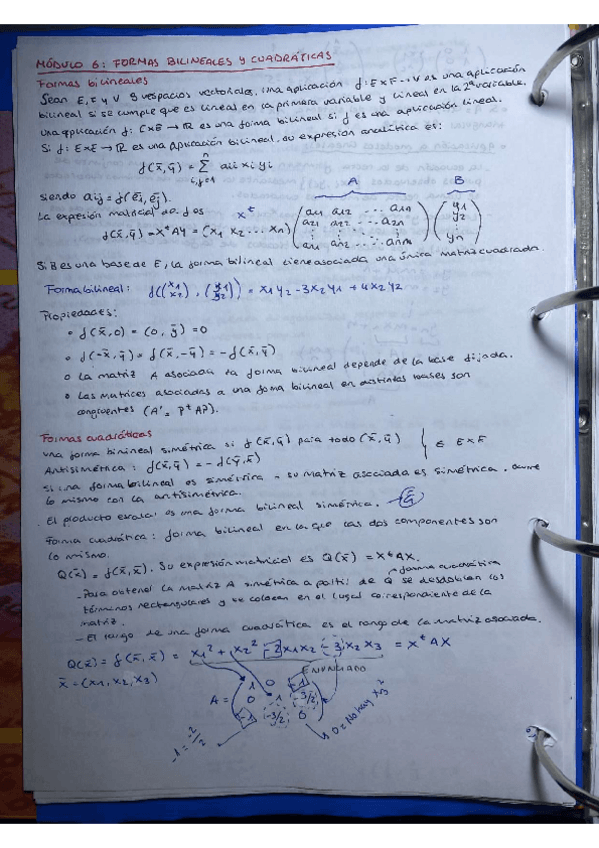 MÓDULO 6: FORMAS BILINEALES Y CUADRÁTICAS
Formas bilineales
Sean E, F y V 3 espacios vectoriales, una aplicación f: E×F→V es una aplicación
bilineal si se cumple que es lineal en la primera variable y lineal en la 2ª variable.
Una aplicación f: E×E → R es una forma bilineal si f es una aplicación lineal.
Si f: E×E → R es una aplicación bilineal, su expresión analítica es:
f(x̄,ȳ) = Σ aij xi yi
n
i,j=1
siendo aij = f(ēi, ēj).
A B
La expresión matricial de f es
x^t
f(x̄,ȳ) = x^t A y = (x1 x2 ... xn) (a11 a12 ... a1n
a21 a22 ... a2n
an1 an2 ... ann) (y1
y2
yn)
Si B es una base de E, la forma bilineal tiene asociada una única matriz cuadrada.
Forma bilineal: f((x1 x2), (y1 y2)) = x1y2 - 3x2y1 + 4x2y2
Propiedades:
• f(x̄,0) = (0,ȳ) = 0
• f(-x̄,ȳ) = f(x̄,-ȳ) = -f(x̄,ȳ)
• La matriz A asociada a la forma bilineal depende de la base fijada.
• Las matrices asociadas a una forma bilineal en distintas bases son
congruentes (A' = P^t AP).
Formas cuadráticas
una forma bilineal simétrica si f(x̄,ȳ) para todo (x̄,ȳ)
∈ E×E
Antisimétrica: f(x̄,ȳ) = -f(ȳ,x̄)
Si una forma bilineal es simétrica → su matriz asociada es simétrica. Ocurre
lo mismo con la antisimétrica.
El producto escalar es una forma bilineal simétrica.
Forma cuadrática: forma bilineal en la que las dos componentes son
lo mismo.
Q(x̄) = f(x̄,x̄). Su expresión matricial es Q(x̄) = x^t AX.
forma cuadrática
- Para obtener la matriz A simétrica a partir de Q se desdoblan los
términos rectangulares y se colocan en el lugar correspondiente de la
matriz.
- El rango de una forma cuadrática es el rango de la matriz asociada.
Q(x̄) = f(x̄,x̄) = x1² + x2² - 2x1x2 - 3x2x3 = x^t AX
x̄ = (x1, x2, x3)
Enunciado
A = (1 0 -1
0 1 -3/2
-1 -3/2 0)
-1 = -2/2
0 = No hay x3²